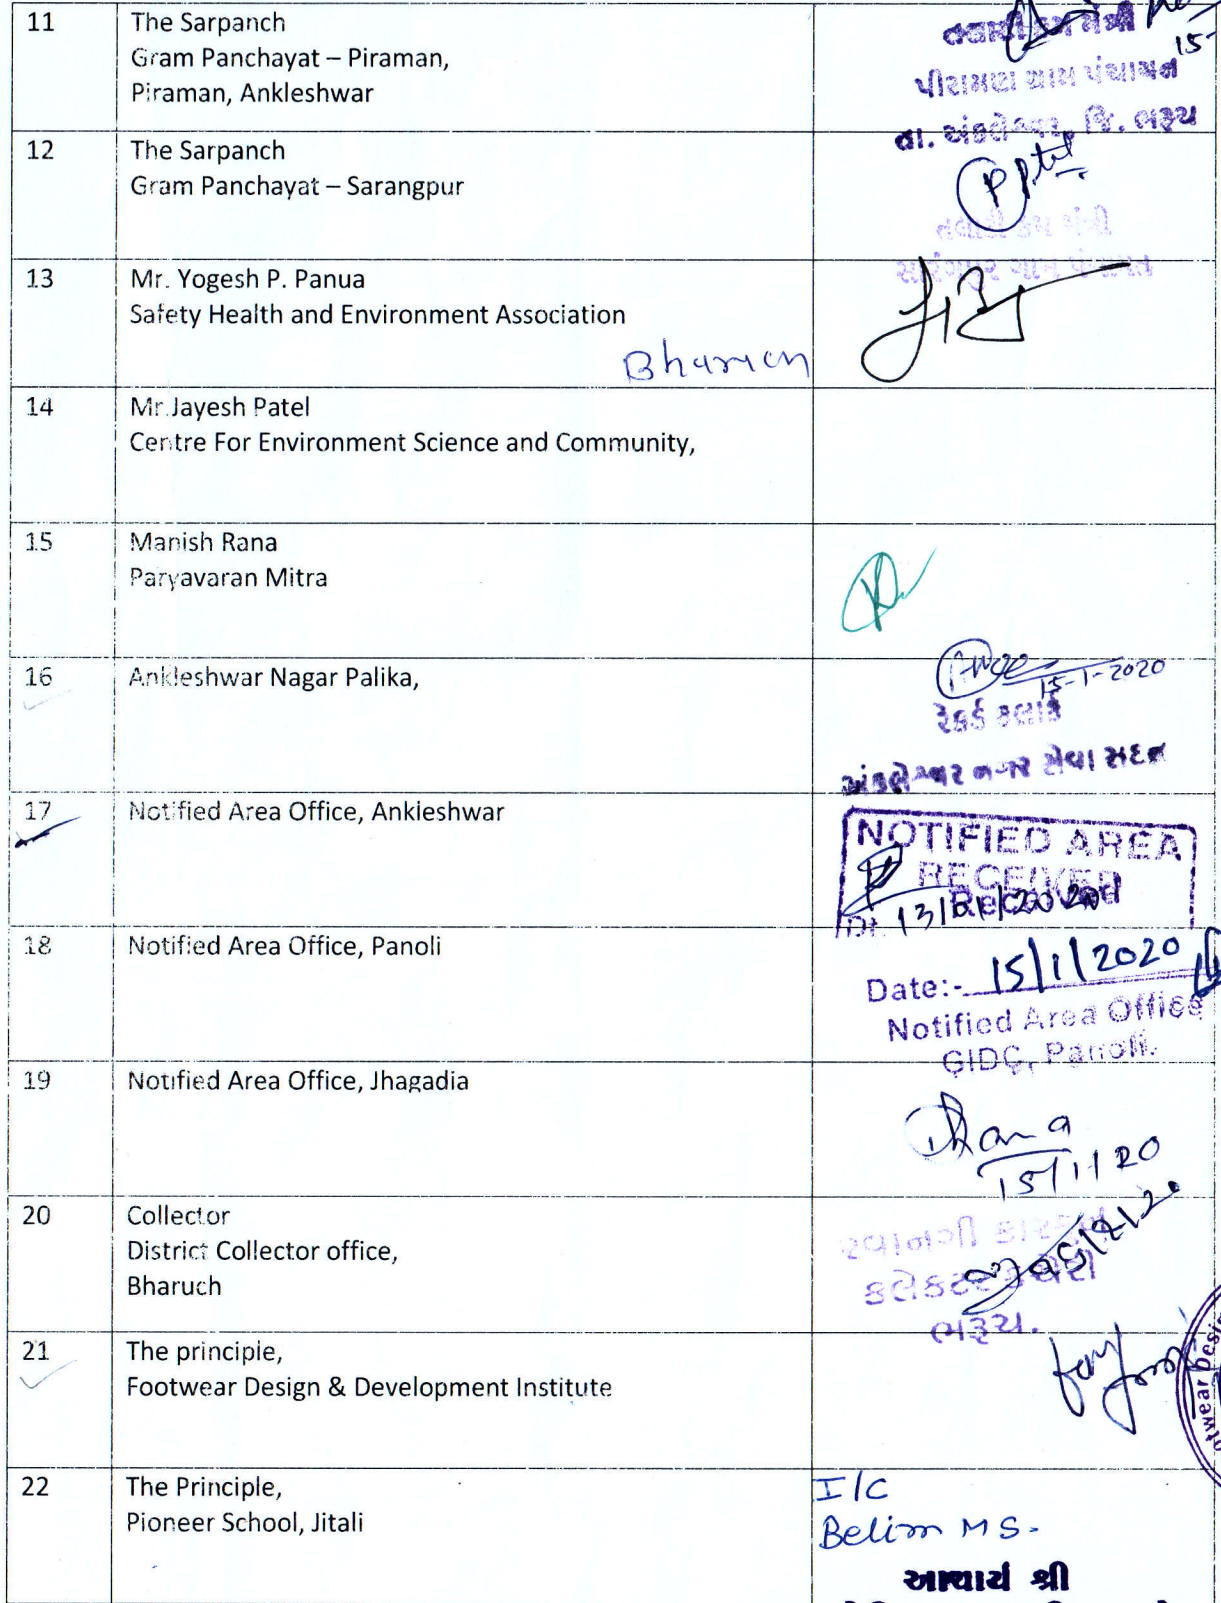 11
The Sarpanch
Gram Panchayat – Piraman,
Piraman, Ankleshwar
15-
તલાટી કમ મંત્રી
પીરામણ ગ્રામ પંચાયત
તા. અંકલેશ્વર, જિ. ભરૂચ
12
The Sarpanch
Gram Panchayat – Sarangpur
તલાટી કમ મંત્રી
13
Mr. Yogesh P. Panua
Safety Health and Environment Association
14
Mr.Jayesh Patel
Centre For Environment Science and Community,
15
Manish Rana
Paryavaran Mitra
16
Ankleshwar Nagar Palika,
15-1-2020
રેકર્ડ કલાર્ક
અંકલેશ્વર નગર સેવા સદન
17
Notified Area Office, Ankleshwar
NOTIFIED AREA
RECEIVED
Received
Dt. 13/01/2020
18
Notified Area Office, Panoli
Date:- 15/1/2020
Notified Area Office
GIDC, Panoli.
19
Notified Area Office, Jhagadia
15/1/20
20
Collector
District Collector office,
Bharuch
ભરૂચ.
21
The principle,
Footwear Design & Development Institute
22
The Principle,
Pioneer School, Jitali
I/C
Belim MS.
આચાર્ય શ્રી